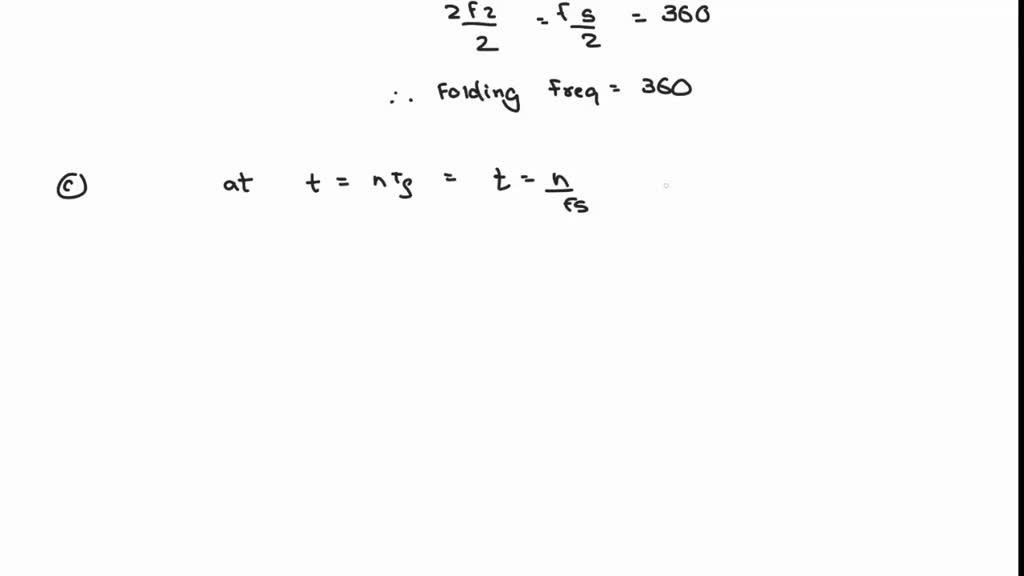 2f2/2 = fs/2 = 360
∴ Folding freq = 360
(c) at t = nTs = t = n/fs